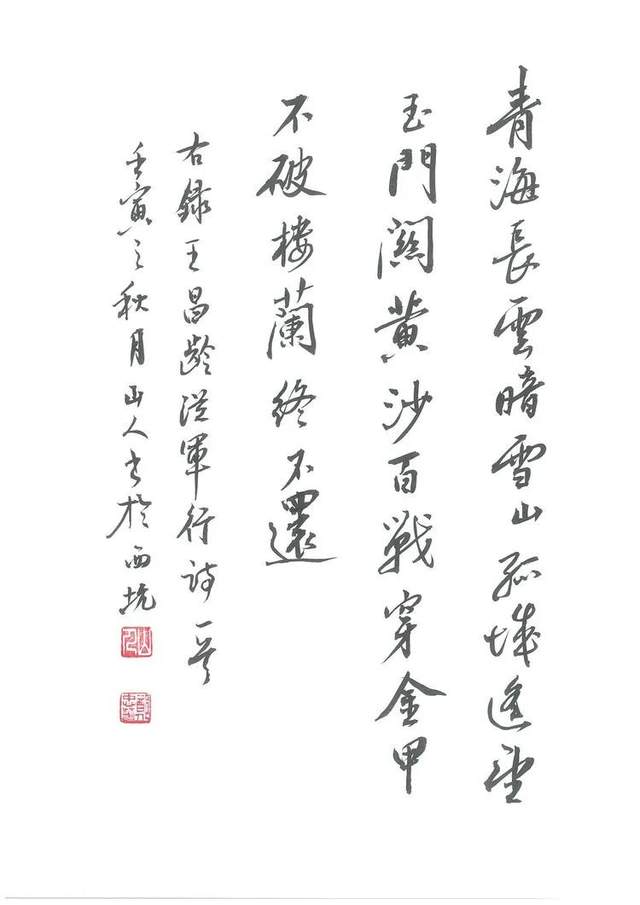 青海長雲暗雪山孤城遙望
玉門關黃沙百戰穿金甲
不破樓蘭終不還
右錄王昌齡從軍行詩一首
壬寅之秋月山人書於西坑